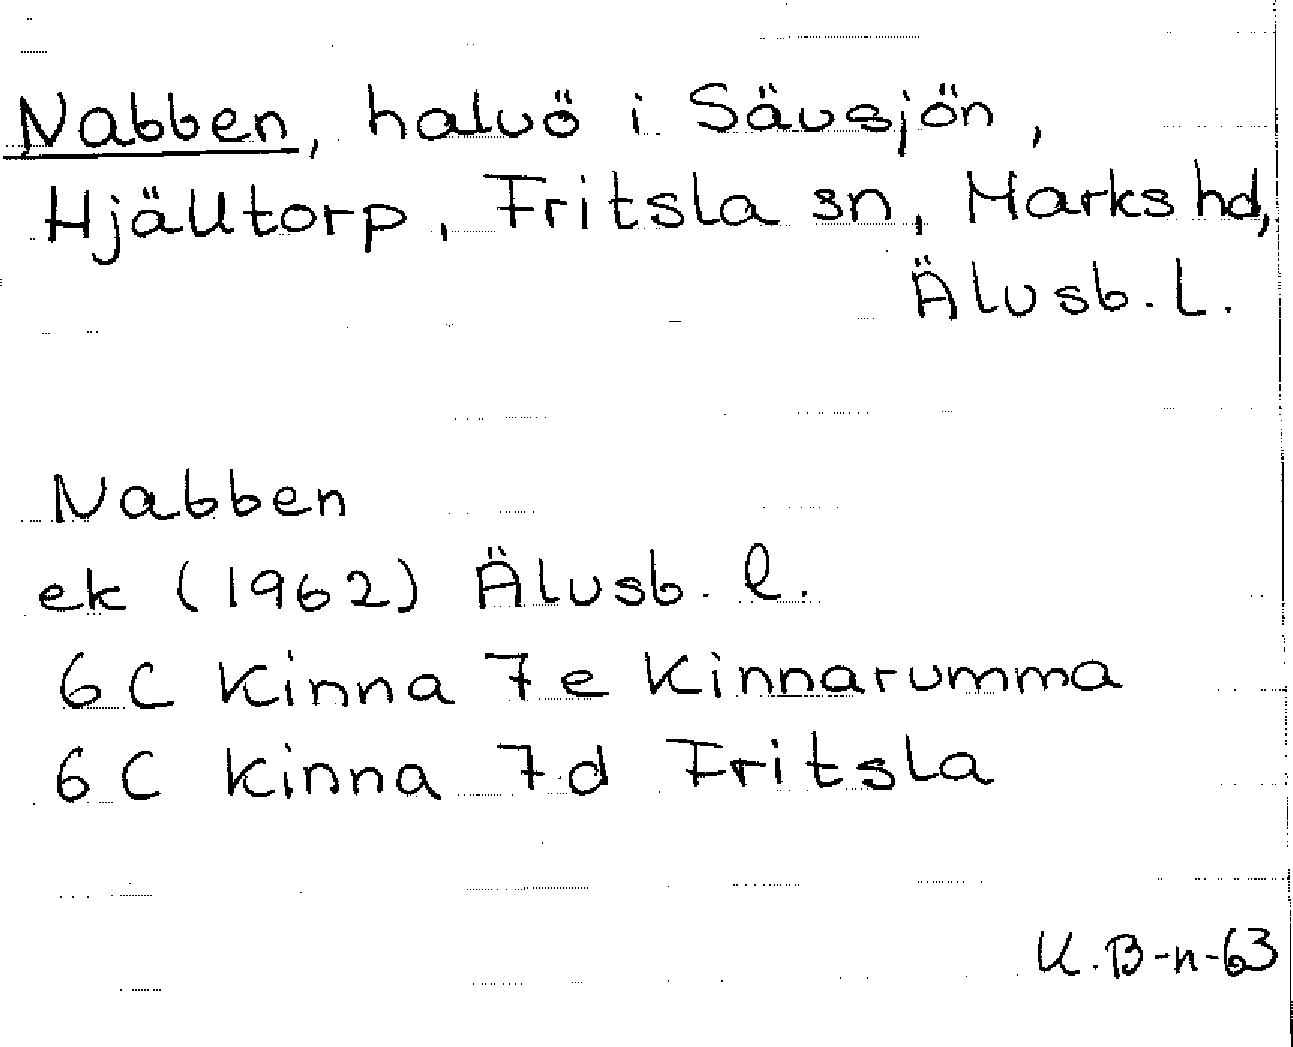 Nabben, halvö i Sävsjön,
Hjälltorp, Fritsla sn, Marks hd,
Älvsb. L.
Nabben
ek (1962) Älvsb. l.
6 C Kinna 7 e Kinnarumma
6 C Kinna 7 d Fritsla
K.B-n-63